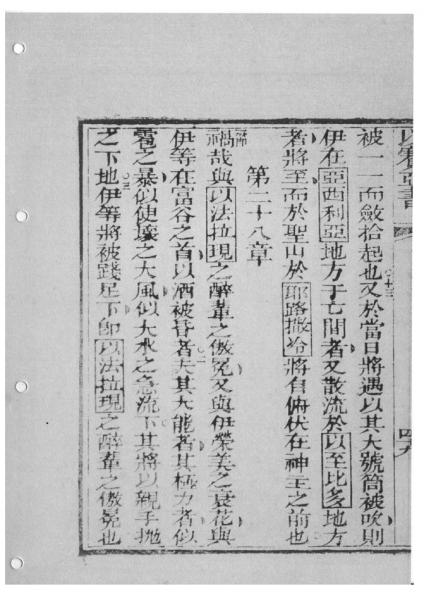 以賽亞書
四九
被一一而斂拾起也又於當日將遇以其大號筒被吹則
伊在亞西利亞地方于亡間者又散流於以至比多地方
者將至而於聖山於耶路撒冷將自俯伏在神主之前也
第二十八章
禍哉與以法拉現之醉輩之傲冕又與伊榮美之衰花與
伊等在富谷之首以酒被昏者夫其大能者其極力者似
雹之暴似使壞之大風似大水之急流下其將以親手拋
之下地伊等將被踐足下即以法拉現之醉輩之傲冕也